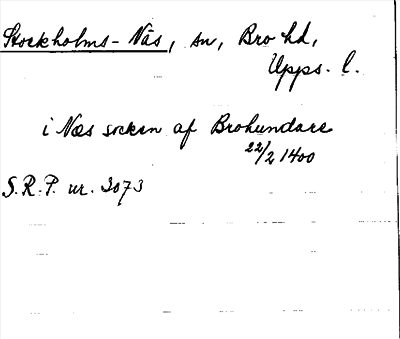 Stockholms-Näs, sn, Bro hd,
Upps. l.
i Næs sockn af Brohundare
22/2 1400
S.R.P. nr. 3073